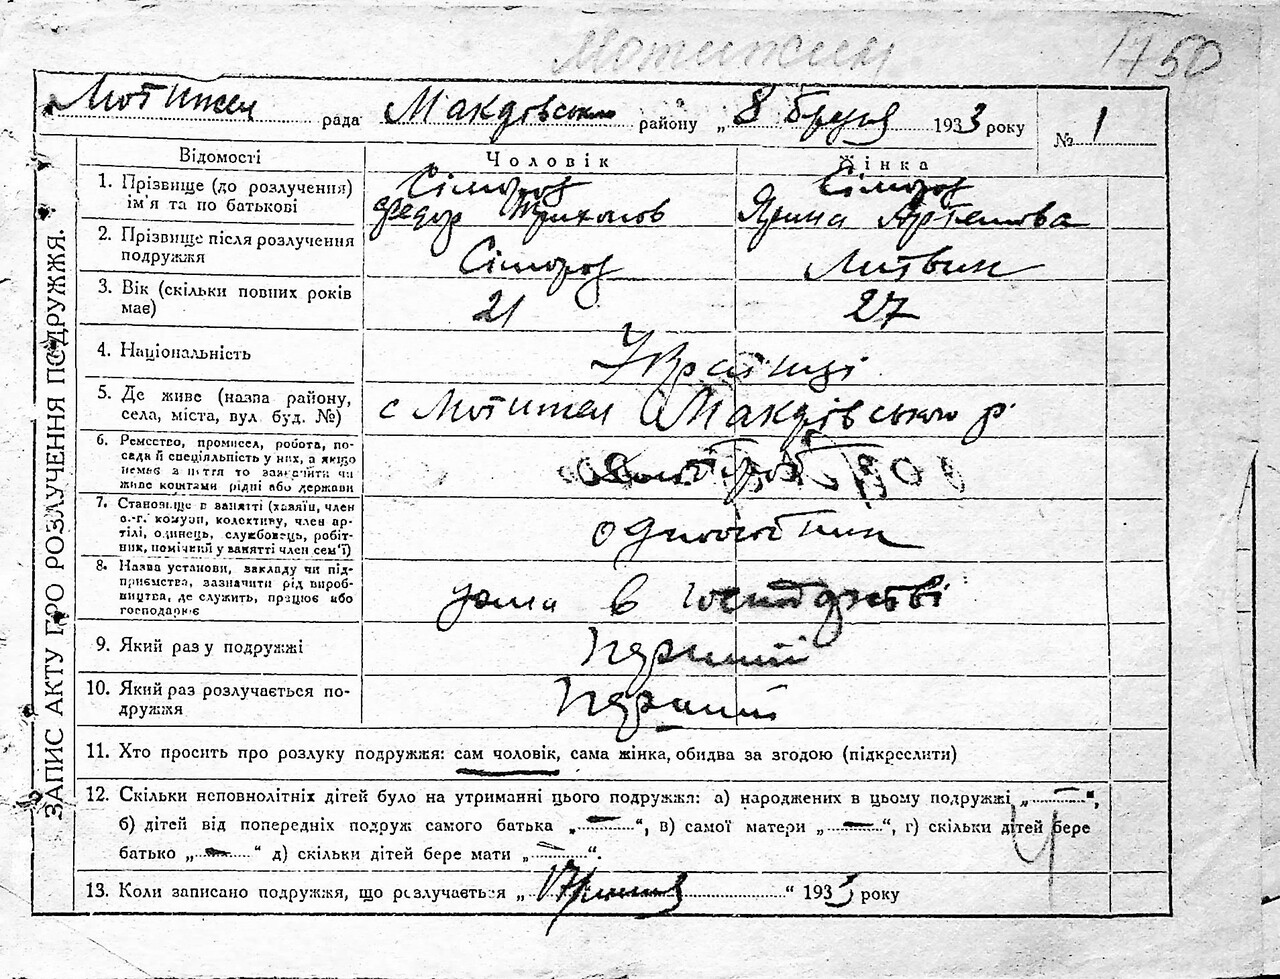 Мотижин 1750
Мотижен рада Макарівського району „8 брудня 1933 року № 1
ЗАПИС АКТУ ПРО РОЗЛУЧЕННЯ ПОДРУЖЖЯ.
Відомості Чоловік Жінка
1. Прізвище (до розлучення) Сімороз Сімороз
ім'я та по батькові Федор Трихонов Ярина Артемова
2. Прізвище після розлучення
подружжя Сімороз Литвин
3. Вік (скільки повних років
має) 21 27
4. Національність Українці
5. Де живе (назва району,
села, міста, вул. буд. №) с Мотижен Макарівського р.
6. Ремество, промисел, робота, по-
сада й спеціяльність у них, а якщо
немає заняття то зазначити чи
живе коштами рідні або держави
7. Становище в занятті (хазяїн, член
с.-г. комуни, колективу, член ар-
тілі, одинець, службовець, робіт-
ник, помічний у занятті член сем'ї) одноосібник
8. Назва установи, закладу чи під-
приємства, зазначити рід вироб-
ництва, де служить, працює або
господарює дома в господарстві
9. Який раз у подружжі Перший
10. Який раз розлучається по-
дружжя Перший
11. Хто просить про розлуку подружжя: сам чоловік, сама жінка, обидва за згодою (підкреслити)
12. Скільки неповнолітніх дітей було на утриманні цього подружжя: а) народжених в цьому подружжі „ — “,
б) дітей від попередніх подруж самого батька „ — “, в) самої матери „ — “, г) скільки дітей бере
батько „ — “ д) скільки дітей бере мати „ — “.
13. Коли записано подружжя, що розлучається „ 17 “ 1933 року